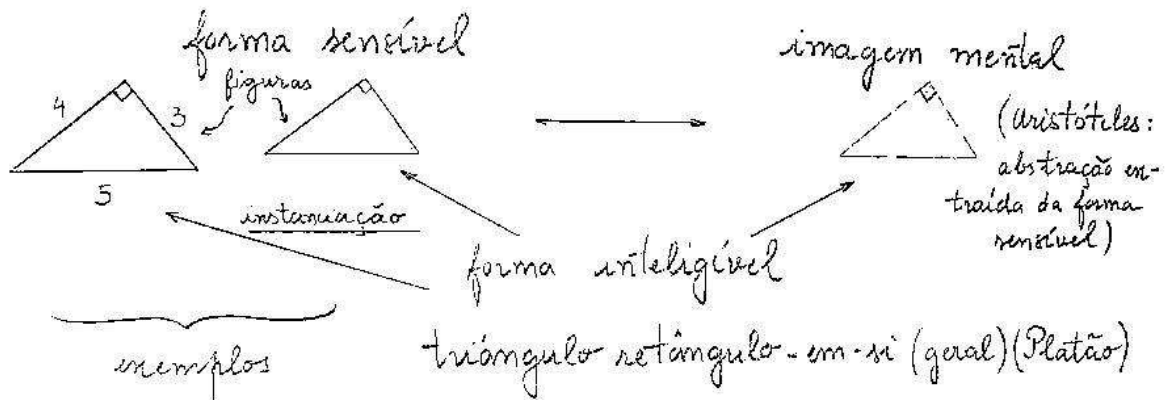 forma sensível
imagem mental
figuras
4
3
5
(Aristóteles:
abstração ex-
traída da forma
sensível)
instanciação
forma inteligível
exemplos
triângulo retângulo-em-si (geral) (Platão)